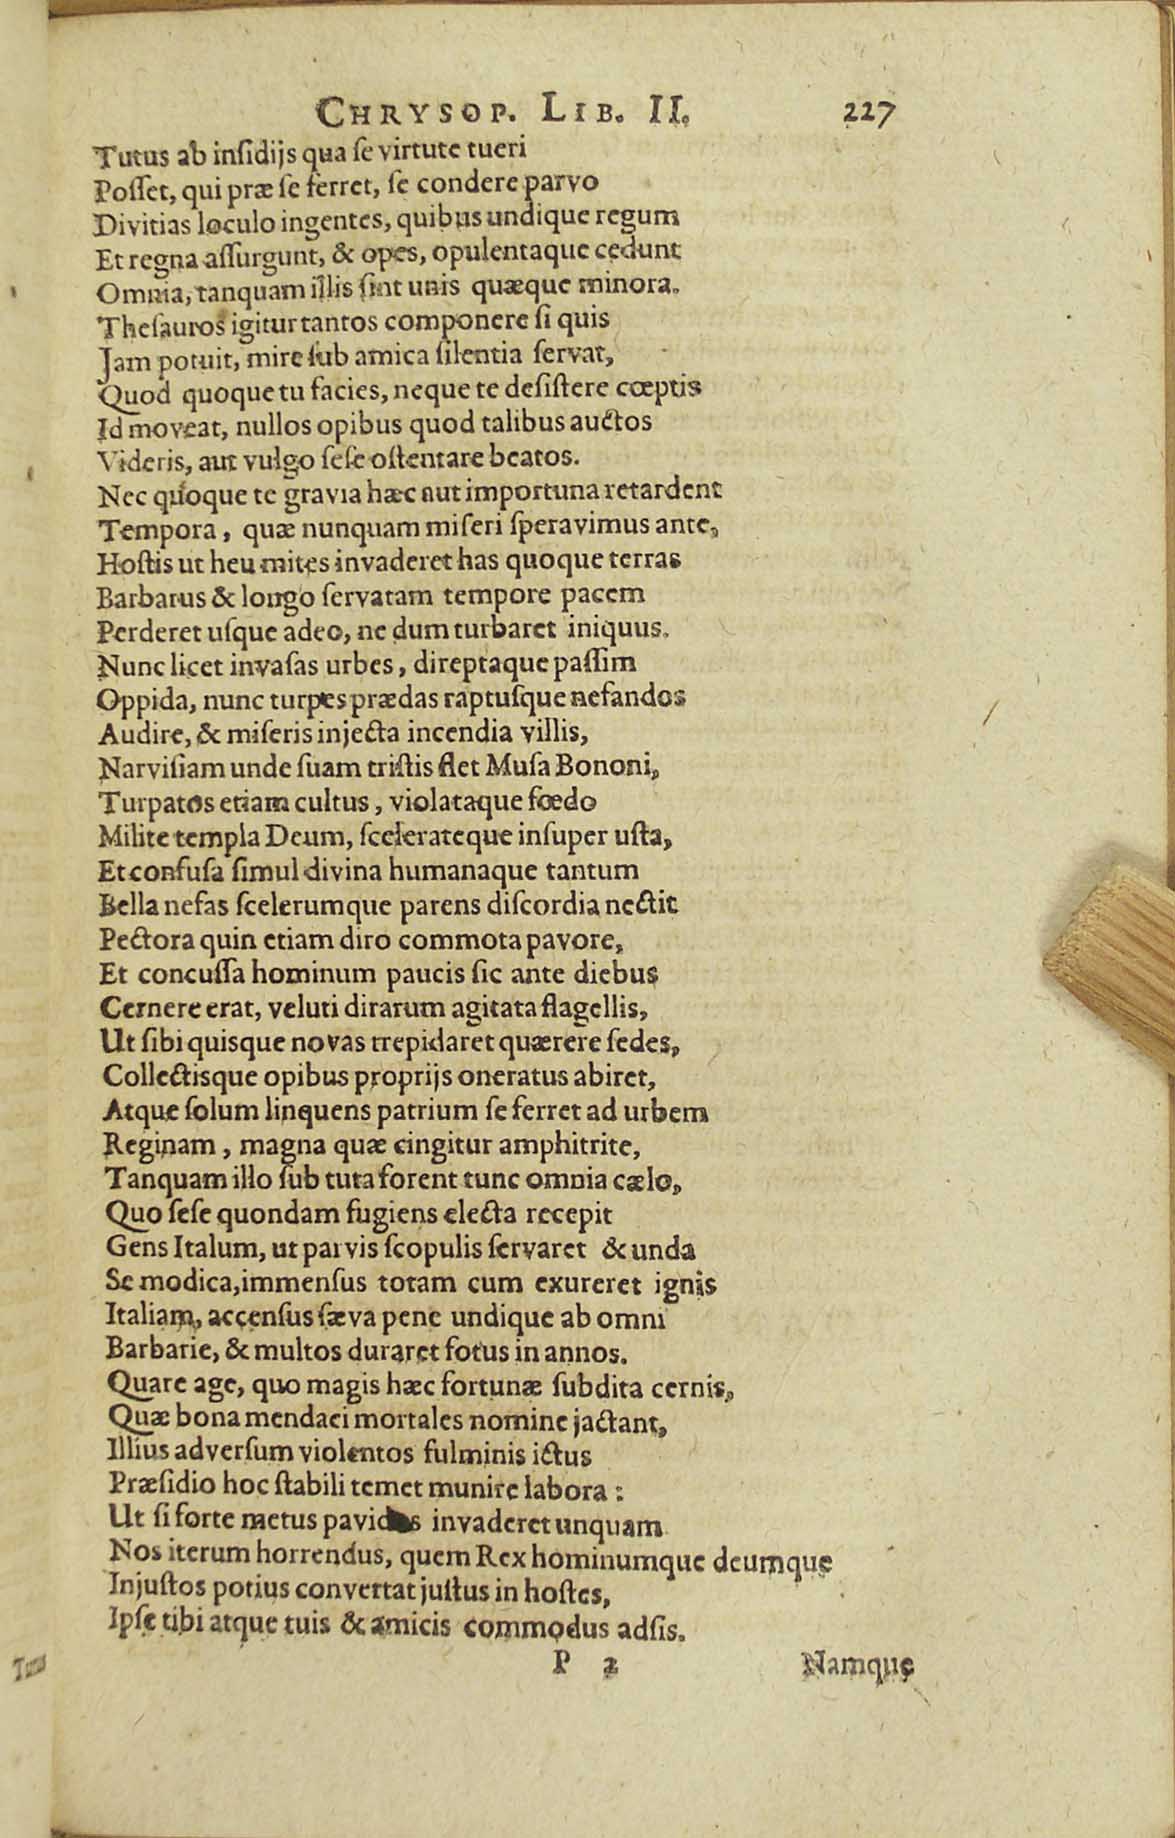 CHRYSOP. LIB. II. 227
Tutus ab insidijs qua se virtute tueri
Posset, qui præ se ferret, se condere parvo
Divitias loculo ingentes, quibus undique regum
Et regna assurgunt, & opes, opulentaque cedunt
Omnia, tanquam illis sint unis quæque minora.
Thesauros igitur tantos componere si quis
Jam potuit, mire sub amica silentia servat,
Quod quoque tu facies, neque te desistere cœptis
Id moveat, nullos opibus quod talibus auctos
Videris, aut vulgo sese ostentare beatos.
Nec quoque te gravia hæc aut importuna retardent
Tempora, quæ nunquam miseri speravimus ante,
Hostis ut heu mites invaderet has quoque terras
Barbarus & longo servatam tempore pacem
Perderet usque adeo, ne dum turbaret iniquus.
Nunc licet invasas urbes, direptaque passim
Oppida, nunc turpes prædas raptusque nefandos
Audire, & miseris injecta incendia villis,
Narvisiam unde suam tristis flet Musa Bononi,
Turpatos etiam cultus, violataque fœdo
Milite templa Deum, scelerateque insuper usta,
Et confusa simul divina humanaque tantum
Bella nefas scelerumque parens discordia nectit
Pectora quin etiam diro commota pavore,
Et concussa hominum paucis sic ante diebus
Cernere erat, veluti dirarum agitata flagellis,
Ut sibi quisque novas trepidaret quærere sedes,
Collectisque opibus proprijs oneratus abiret,
Atque solum linquens patrium se ferret ad urbem
Reginam, magna quæ cingitur amphitrite,
Tanquam illo sub tuta forent tunc omnia cælo,
Quo sese quondam fugiens electa recepit
Gens Italum, ut parvis scopulis servaret & unda
Se modica, immensus totam cum exureret ignis
Italiam, accensus sæva pene undique ab omni
Barbarie, & multos duraret fotus in annos.
Quare age, quo magis hæc fortunæ subdita cernis,
Quæ bona mendaci mortales nomine jactant,
Illius adversum violentos fulminis ictus
Præsidio hoc stabili temet munire labora:
Ut si forte metus pavidos invaderet unquam
Nos iterum horrendus, quem Rex hominumque deumque
Injustos potius convertat justus in hostes,
Ipse tibi atque tuis & amicis commodus adsis.
P 2 Namque